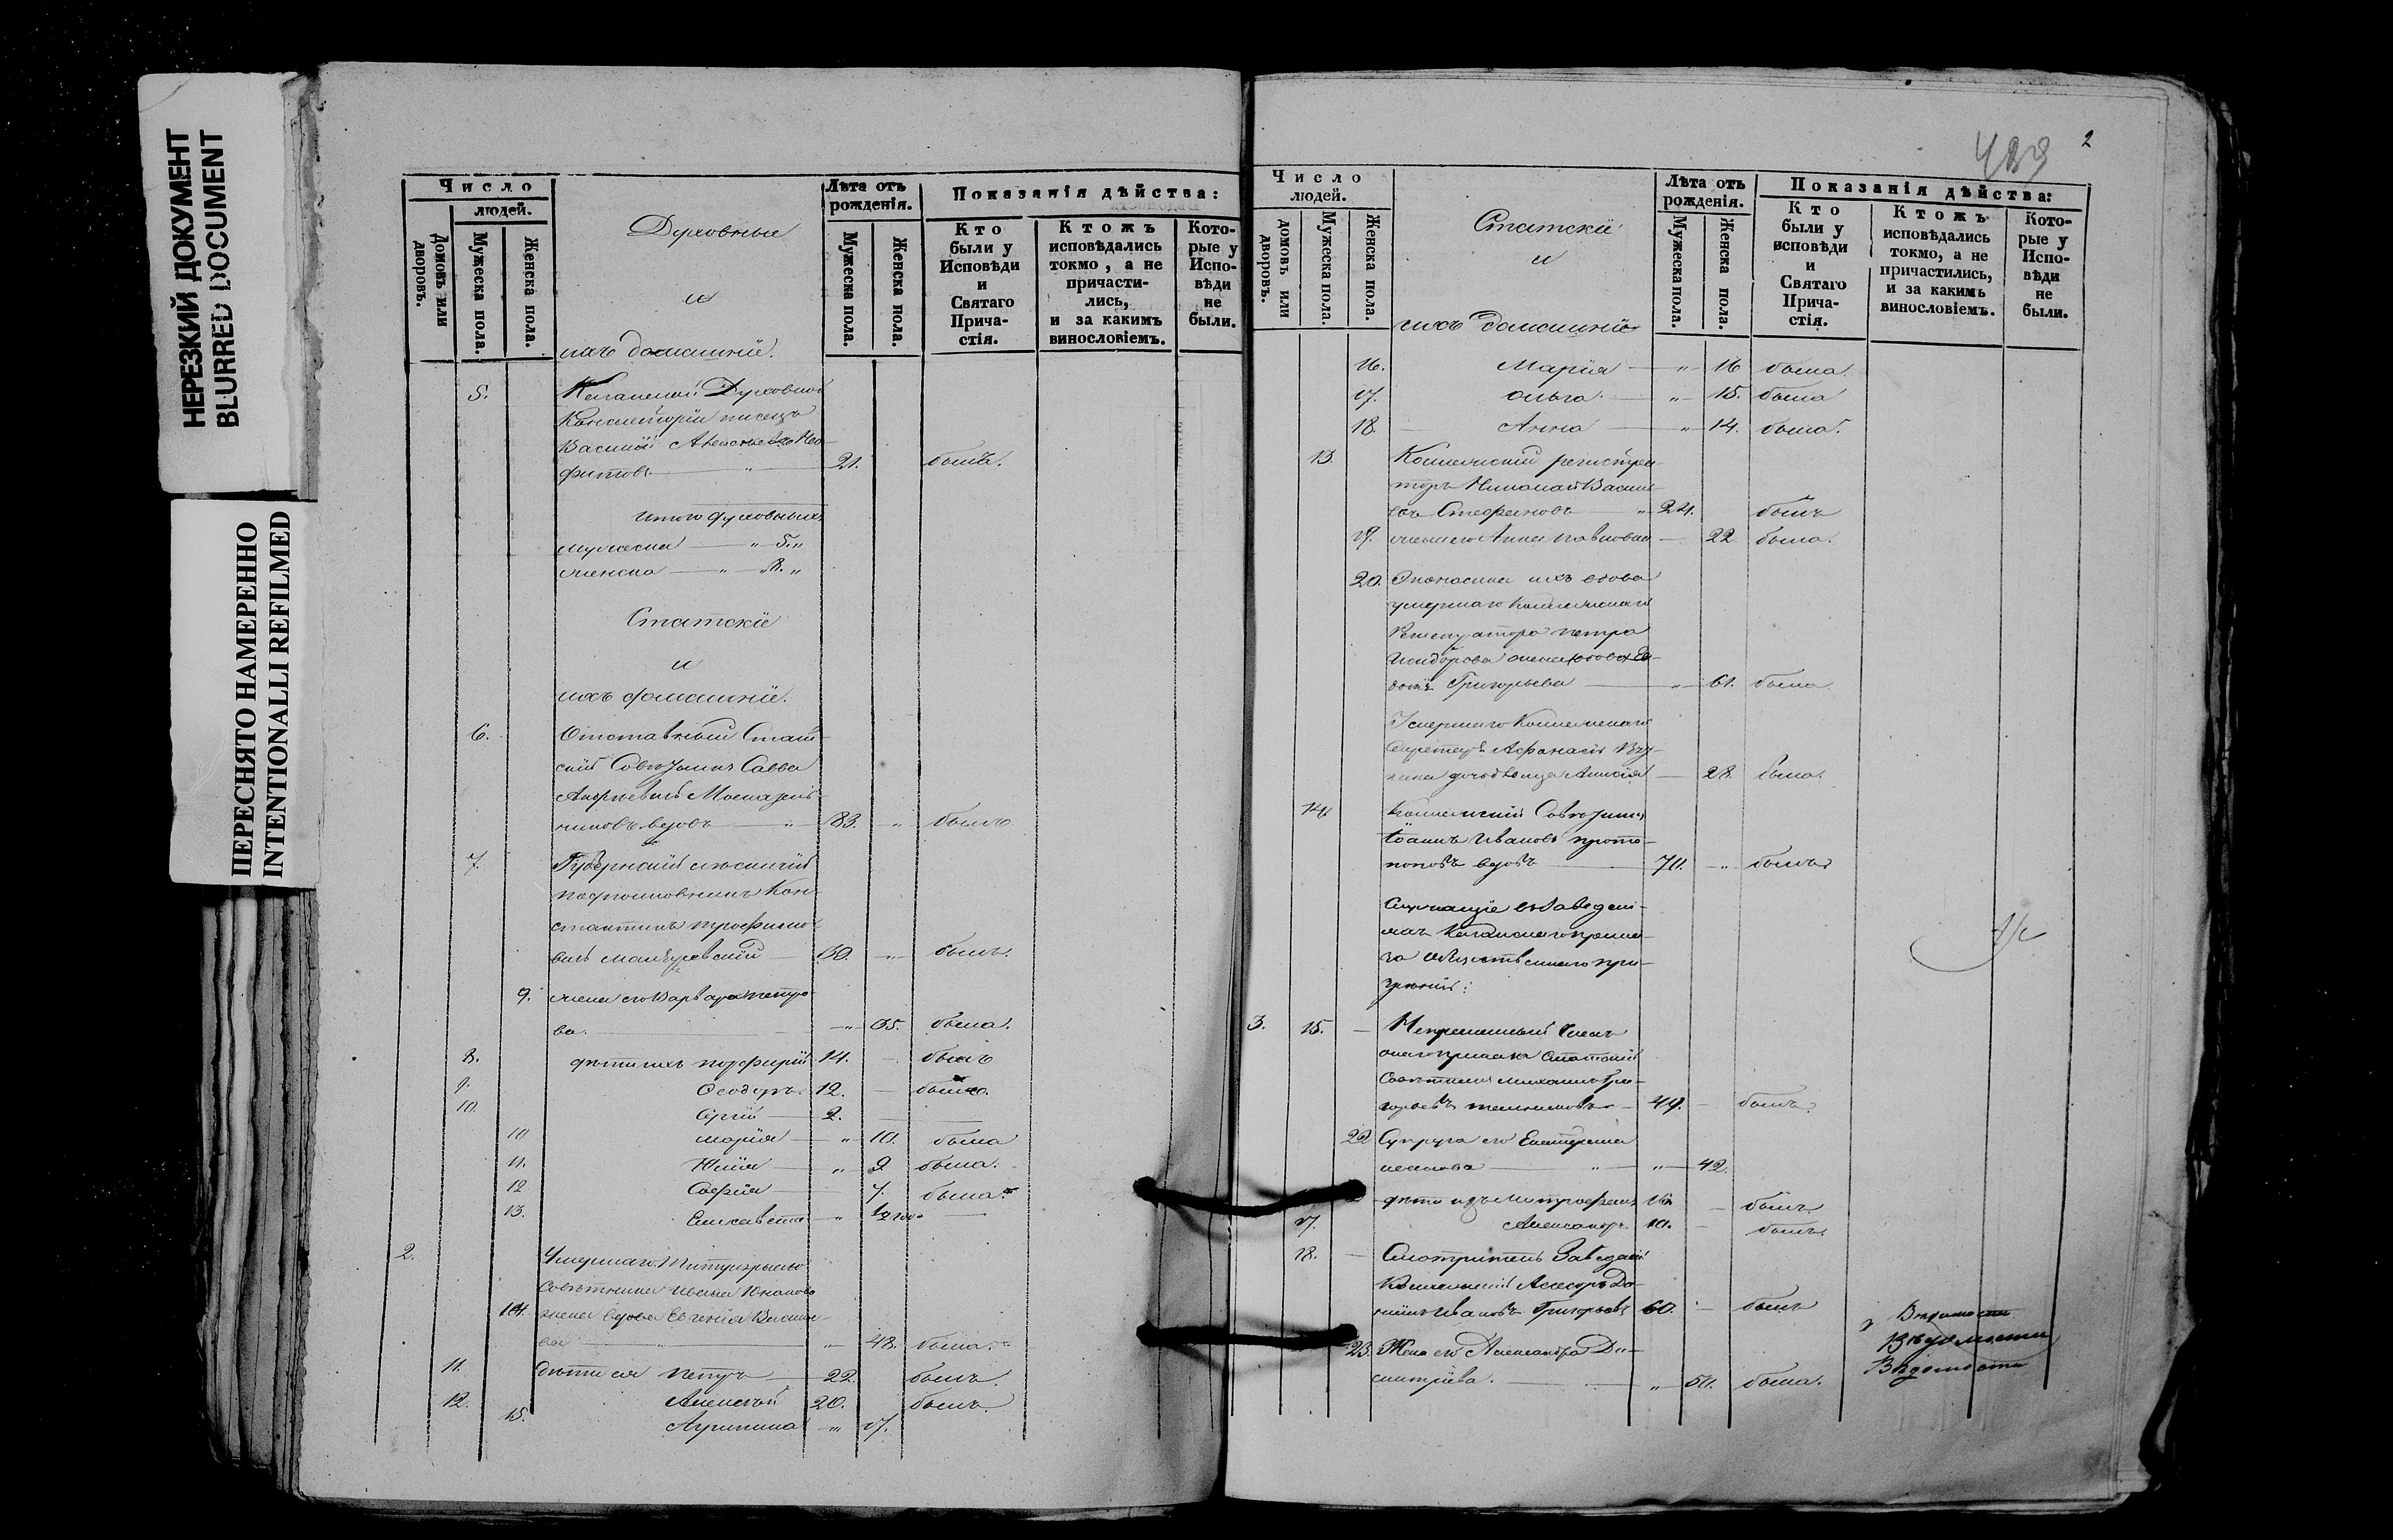 НЕРЕЗКИЙ ДОКУМЕНТ
BLURRED DOCUMENT
ПЕРЕСНЯТО НАМЕРЕННО
INTENTIONALLI REFILMED
Число
людей.
Домовъ или дворовъ.
Мужеска пола.
Женска пола.
Духовные
и
ихъ домашніе.
Лѣта отъ
рожденія.
Мужеска пола.
Женска пола.
Показанія дѣйства:
Кто
были у
Исповѣди
и
Святаго
Прича-
стія.
Ктожъ
исповѣдались
токмо, а не
причасти-
лись,
и за какимъ
винословіемъ.
Кото-
рые у
Испо-
вѣди
не
были.
5. Казанской Духовной
Консисторіи писецъ
Василій
21. былъ.
Итого духовныхъ
мужеска " 5. "
женска " 8. "
Статскіе
и
ихъ домашніе.
6. Отставный Стат-
скій Совѣтникъ Савва
Андреевичь Москатель-
никовъ вдовъ " 83. " былъ
7. Губернскій лѣсничій
подполковникъ Кон-
стантинъ Трофимо-
вичь 50. " былъ.
9. жена его Варвара Петро-
ва. " 35. была.
8. дѣти ихъ Порфирій 14. былъ
9. Ѳеодоръ. 12. былъ
10. Сергій 2.
10 Марія " 10. была
11. Юлія " 9 была.
12 Софія 7. была.
13. Елисавета " 1/2 года
2. Умершаго Титулярнаго
Совѣтника Ивана
14. жена вдова Евгенія Василье-
ва " 48. была.
11. дѣти ея Петръ 22. былъ.
12. Алексѣй 20. былъ.
15. Агрипина " 17.
489
2
Число
людей.
домовъ или дворовъ.
Мужеска пола.
Женска пола.
Статскіе
и
ихъ домашніе
Лѣта отъ
рожденія.
Мужеска пола.
Женска пола.
Показанія дѣйства:
Кто
были у
исповѣди
и
Святаго
Прича-
стія.
Ктожъ
исповѣдались
токмо, а не
причастились,
и за какимъ
винословіемъ.
Кото-
рые у
Испо-
вѣди
не
были.
16. Марія " 16 была.
17. Ольга " 15. была
18. Анна " 14. была.
13. Коллежскій регистра-
торъ Николай Василь-
евъ Стефановъ " 24. былъ
19. жена его Анна Павлова 22 была.
20. ихъ вдова
умершаго Коллежскаго
Регистратора Петра
Исидорова
Григорьева " 61. была.
Умершаго Коллежскаго
Секретаря Афанасія
28. была.
14. Коллежскій Совѣтникъ
Іоаннъ Ивановъ Прото-
поповъ вдовъ 70. " былъ
Служащіе въ Заведені-
яхъ Казанскаго прика-
за общественнаго при-
зрѣнія:
3. 15. Непремѣнный Членъ
онаго приказа Статскій
Совѣтникъ Михаилъ Гри-
горьевъ 49. былъ.
22 Супруга его Екатерина
" " 42.
дѣти ихъ Митрофанъ 16 былъ.
17. Александръ 10. былъ.
18. Смотритель Заведеній
Коллежскій Асесоръ Да-
ніилъ Ивановъ Григорьевъ 60. былъ
23. Жена его Александра Ди-
митріева. " 50. была.
Вѣдомости
Вѣдомости
Вѣдомости